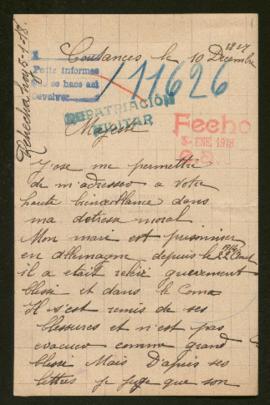 Coutances le 10 Décembre
1917
1
Pide informes
que se hace así
devolver
/11626
REPATRIACIÓN
MILITAR
Fecho
5-ENE 1918
Majesté
J'ose me permettre
de m'adresser a votre
haute bienveillance dans
ma detresse moral
Mon mari est prisonnier
en Allemagne depuis le 22 Aout
1914
il a etait relevé grievement
blessé et dans le Coma
Il s'est remis de ses
blessures et n'est pas
evacuée comme grand
blessé Mais D'apres ses
lettres je juge que son